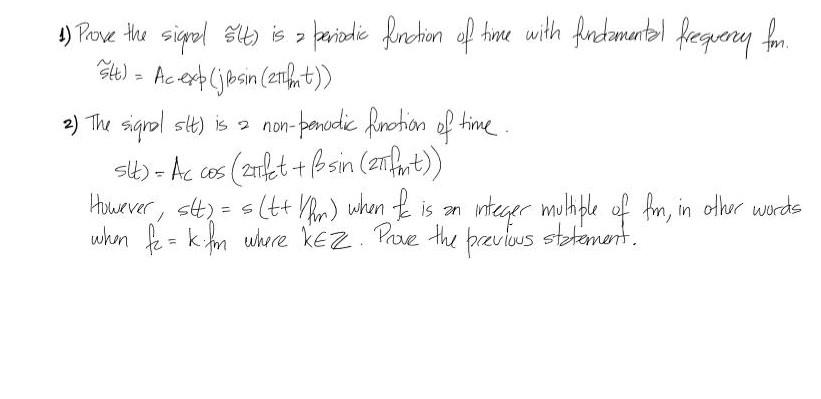 1) Prove the signal s̃(t) is a periodic function of time with fundamental frequency fm.
s̃(t) = Ac·exp(jβsin(2πfmt))
2) The signal s(t) is a non-periodic function of time.
s(t) = Ac cos(2πfct + βsin(2πfmt))
However, s(t) = s(t+1/fm) when fc is an integer multiple of fm, in other words
when fc = k·fm where k∈ℤ. Prove the previous statement.